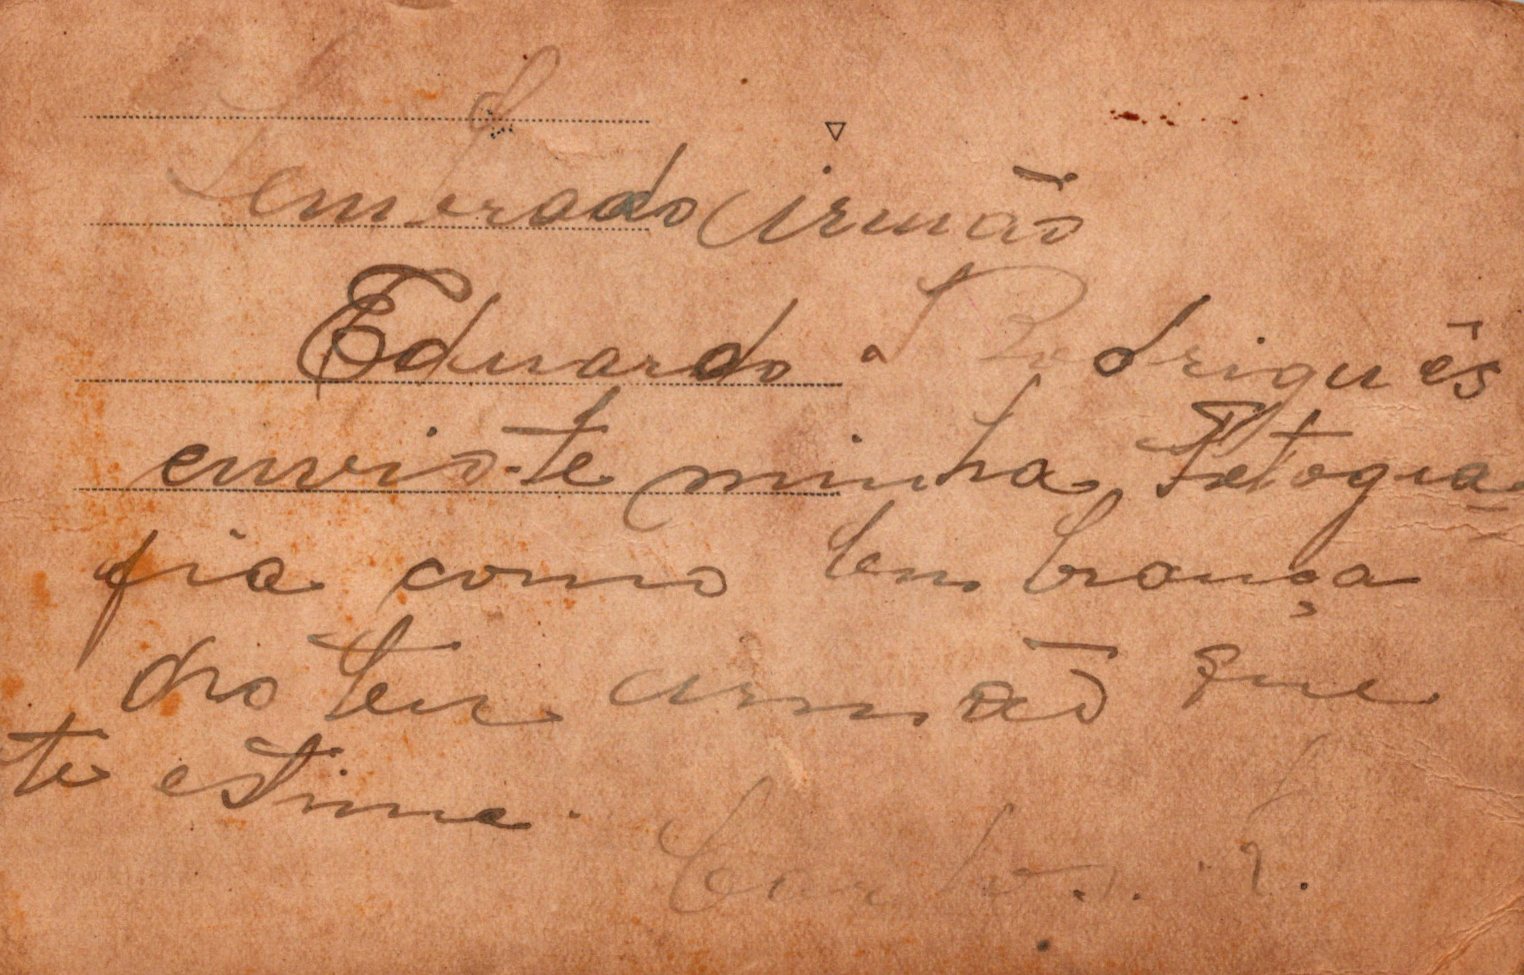 Lembrado irmão
Eduardo Rodriguês
envio-te minha Fotogra
fia como lembrança
do teu irmão que
te estime.
Carlos